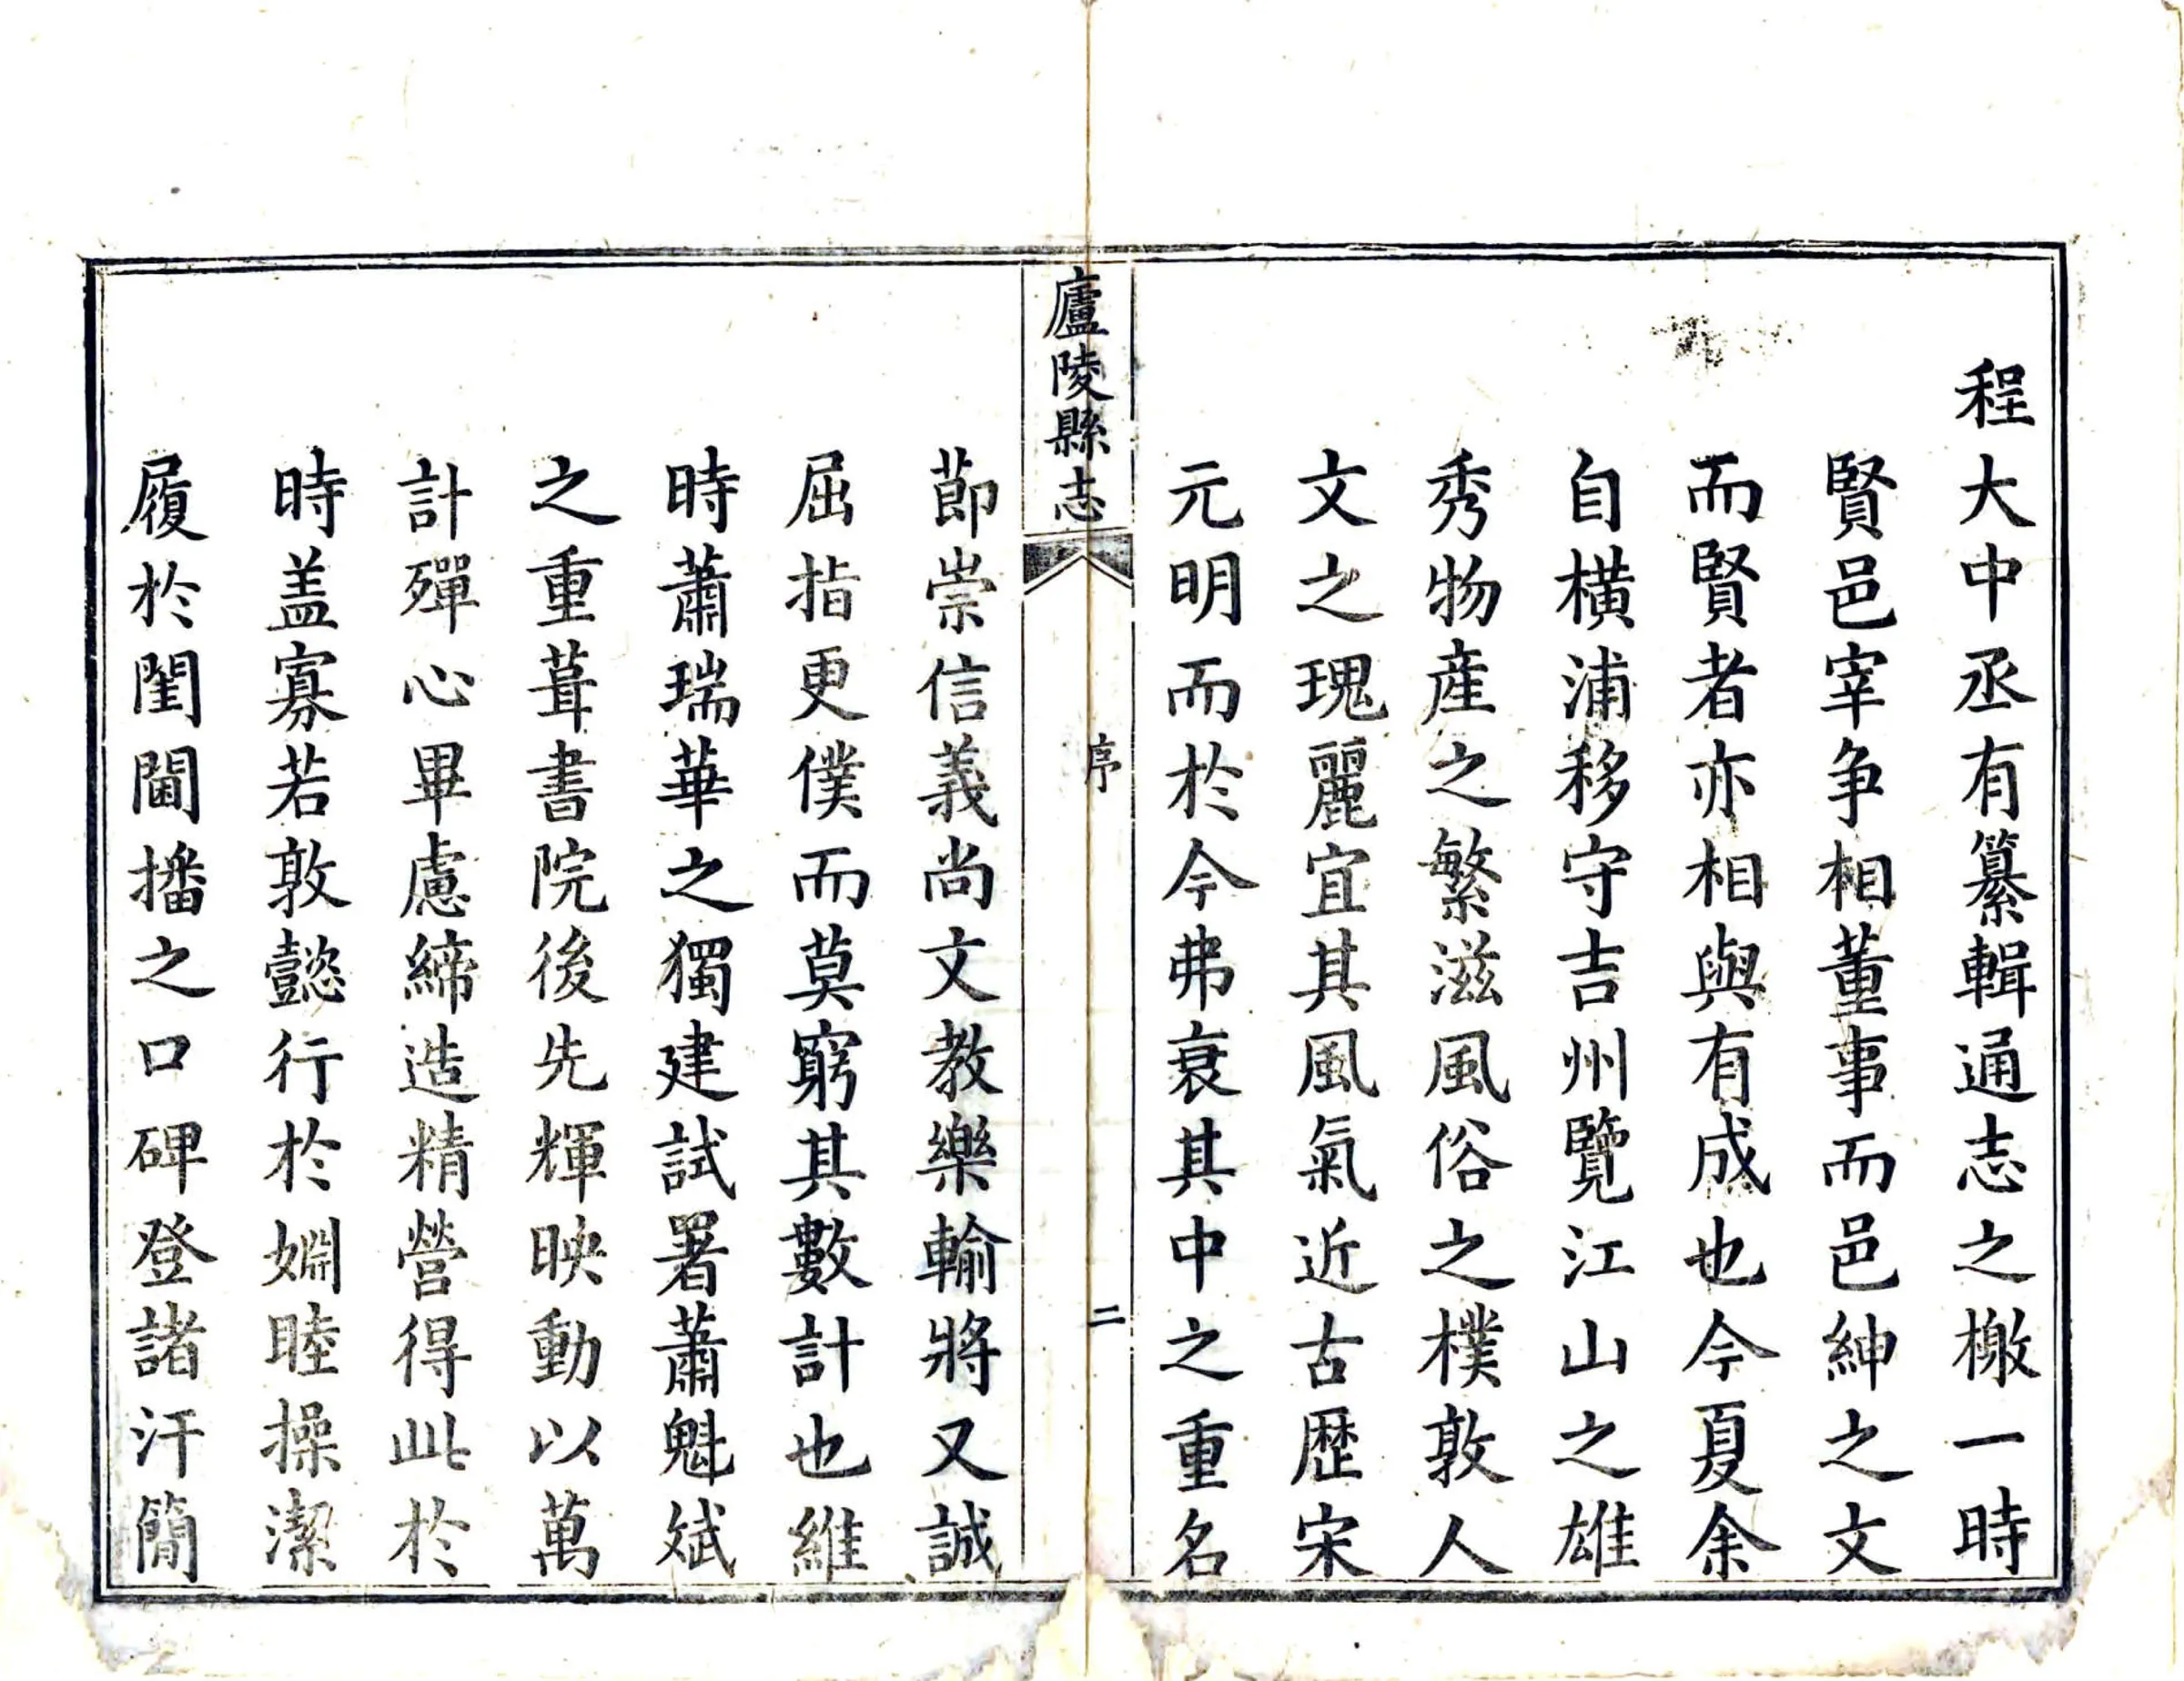 程大中丞有纂輯通志之檄一時
賢邑宰争相董事而邑紳之文
而賢者亦相與有成也今夏余
自橫浦移守吉州覽江山之雄
秀物産之繁滋風俗之樸敦人
文之瑰麗宜其風氣近古歴宋
元明而於今弗衰其中之重名
廬陵縣志
序
二
節崇信義尚文教樂輸將又誠
屈指更僕而莫窮其數計也維
時蕭瑞華之獨建試署蕭魁斌
之重葺書院後先輝映動以萬
計殫心畢慮締造精營得此於
時盖寡若敦懿行於婣睦操潔
履於閨閫播之口碑登諸汗簡